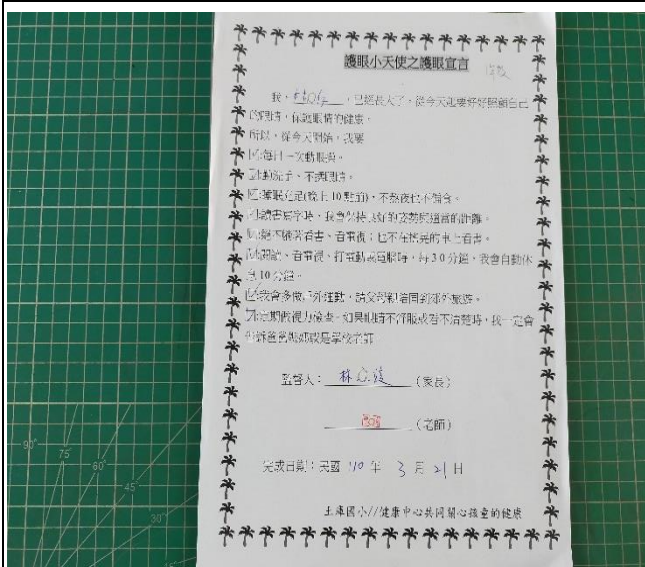 護眼小天使之護眼宣言
我，，已經長大了，從今天起要好好照顧自己
的眼睛，保護眼睛的健康。
所以，從今天開始，我要
每日一次動眼操。
勤洗手、不揉眼睛。
睡眠充足(晚上10點前)，不熬夜也不偏食。
讀書寫字時，我會保持良好的姿勢與適當的距離。
絕不躺著看書、看電視；也不在搖晃的車上看書。
閱讀、看電視、打電動或電腦時，每30分鐘，我會自動休
息10分鐘。
我會多做戶外運動，請父母親陪同到郊外旅遊。
定期做視力檢查。如果眼睛不舒服或看不清楚時，我一定會
告訴爸爸媽媽或是學校老師
監督人：林（家長）
（老師）
完成日期：民國 110 年 3 月 21 日
土庫國小//健康中心共同關心孩童的健康
90°
75°
60°
45°
30°